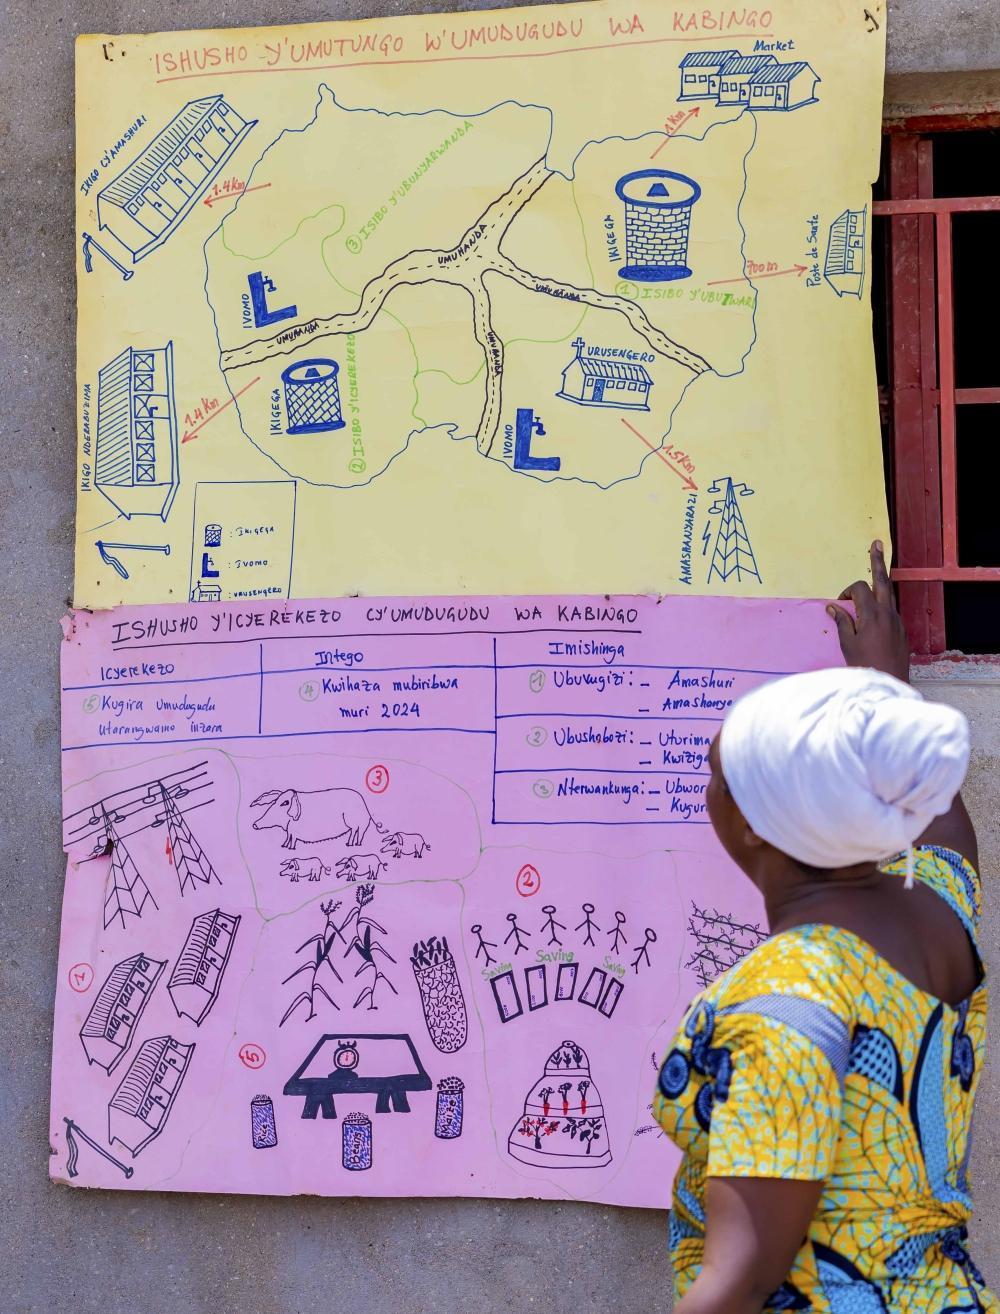 ISHUSHO Y'UMUTUNGO W'UMUDUGUDU WA KABINGO
Market
IKIGO CY'AMASHURI
1 Km
1.4 Km
③ ISIBO Y'UBUNYARWANDA
UMUHANDA
IKIGEGA
Poste de Sante
700m
① ISIBO Y'UBUTWARI
IVOMO
UMUHANDA
UMUHANDA
UMUHANDA
URUSENGERO
IKIGO NDERABUZIMA
1.4 Km
IKIGEGA
② ISIBO Y'ICYEREKEZO
IVOMO
1.5Km
AMASHANYARAZI
: IKIGEGA
: IVOMO
: URUSENGERO
ISHUSHO Y'ICYEREKEZO CY'UMUDUGUDU WA KABINGO
Icyerekezo
Intego
Imishinga
⑤ Kugira umudugudu
utarangwamo inzara
④ Kwihaza mubiribwa
muri 2024
① Ubuvugizi: - Amashuri
- Amashanya
② Ubushobozi: - Uturima
- Kwiziga
③ Nterwankunga: - Ubwor
- Kugur
③
②
①
Saving
Saving
Saving
⑤
Rice
Beans
Maize